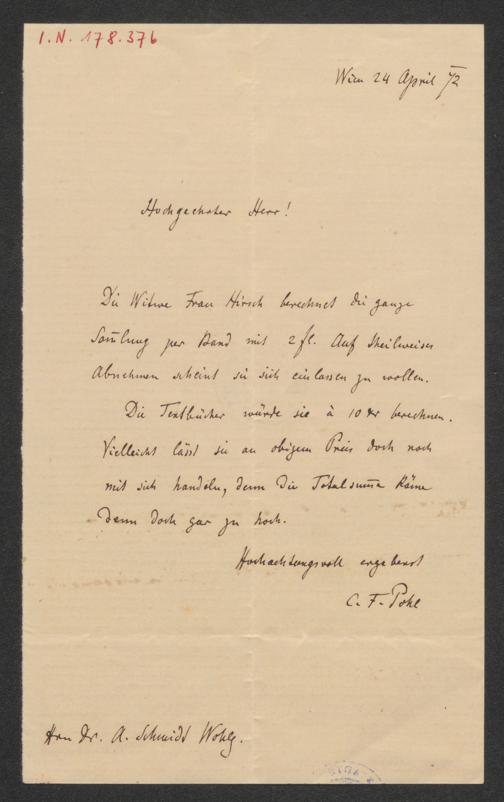 I.N. 178.376
Wien 24 April 72
Hochgeehrter Herr!
Die Witwe Frau Hirsch berechnet die ganze
Sam̄lung per Band mit 2 fl. Auf theilweises
Abnehmen scheint sie sich einlassen zu wollen.
Die Textbücher würde sie à 10 xr berechnen.
Vielleicht lässt sie an obigem Preis doch noch
mit sich handeln, denn die Totalsum̄e käme
denn doch gar zu hoch.
Hochachtungsvoll ergebenst
C. F. Pohl
Hrn Dr. A. Schmidt Wohlg.